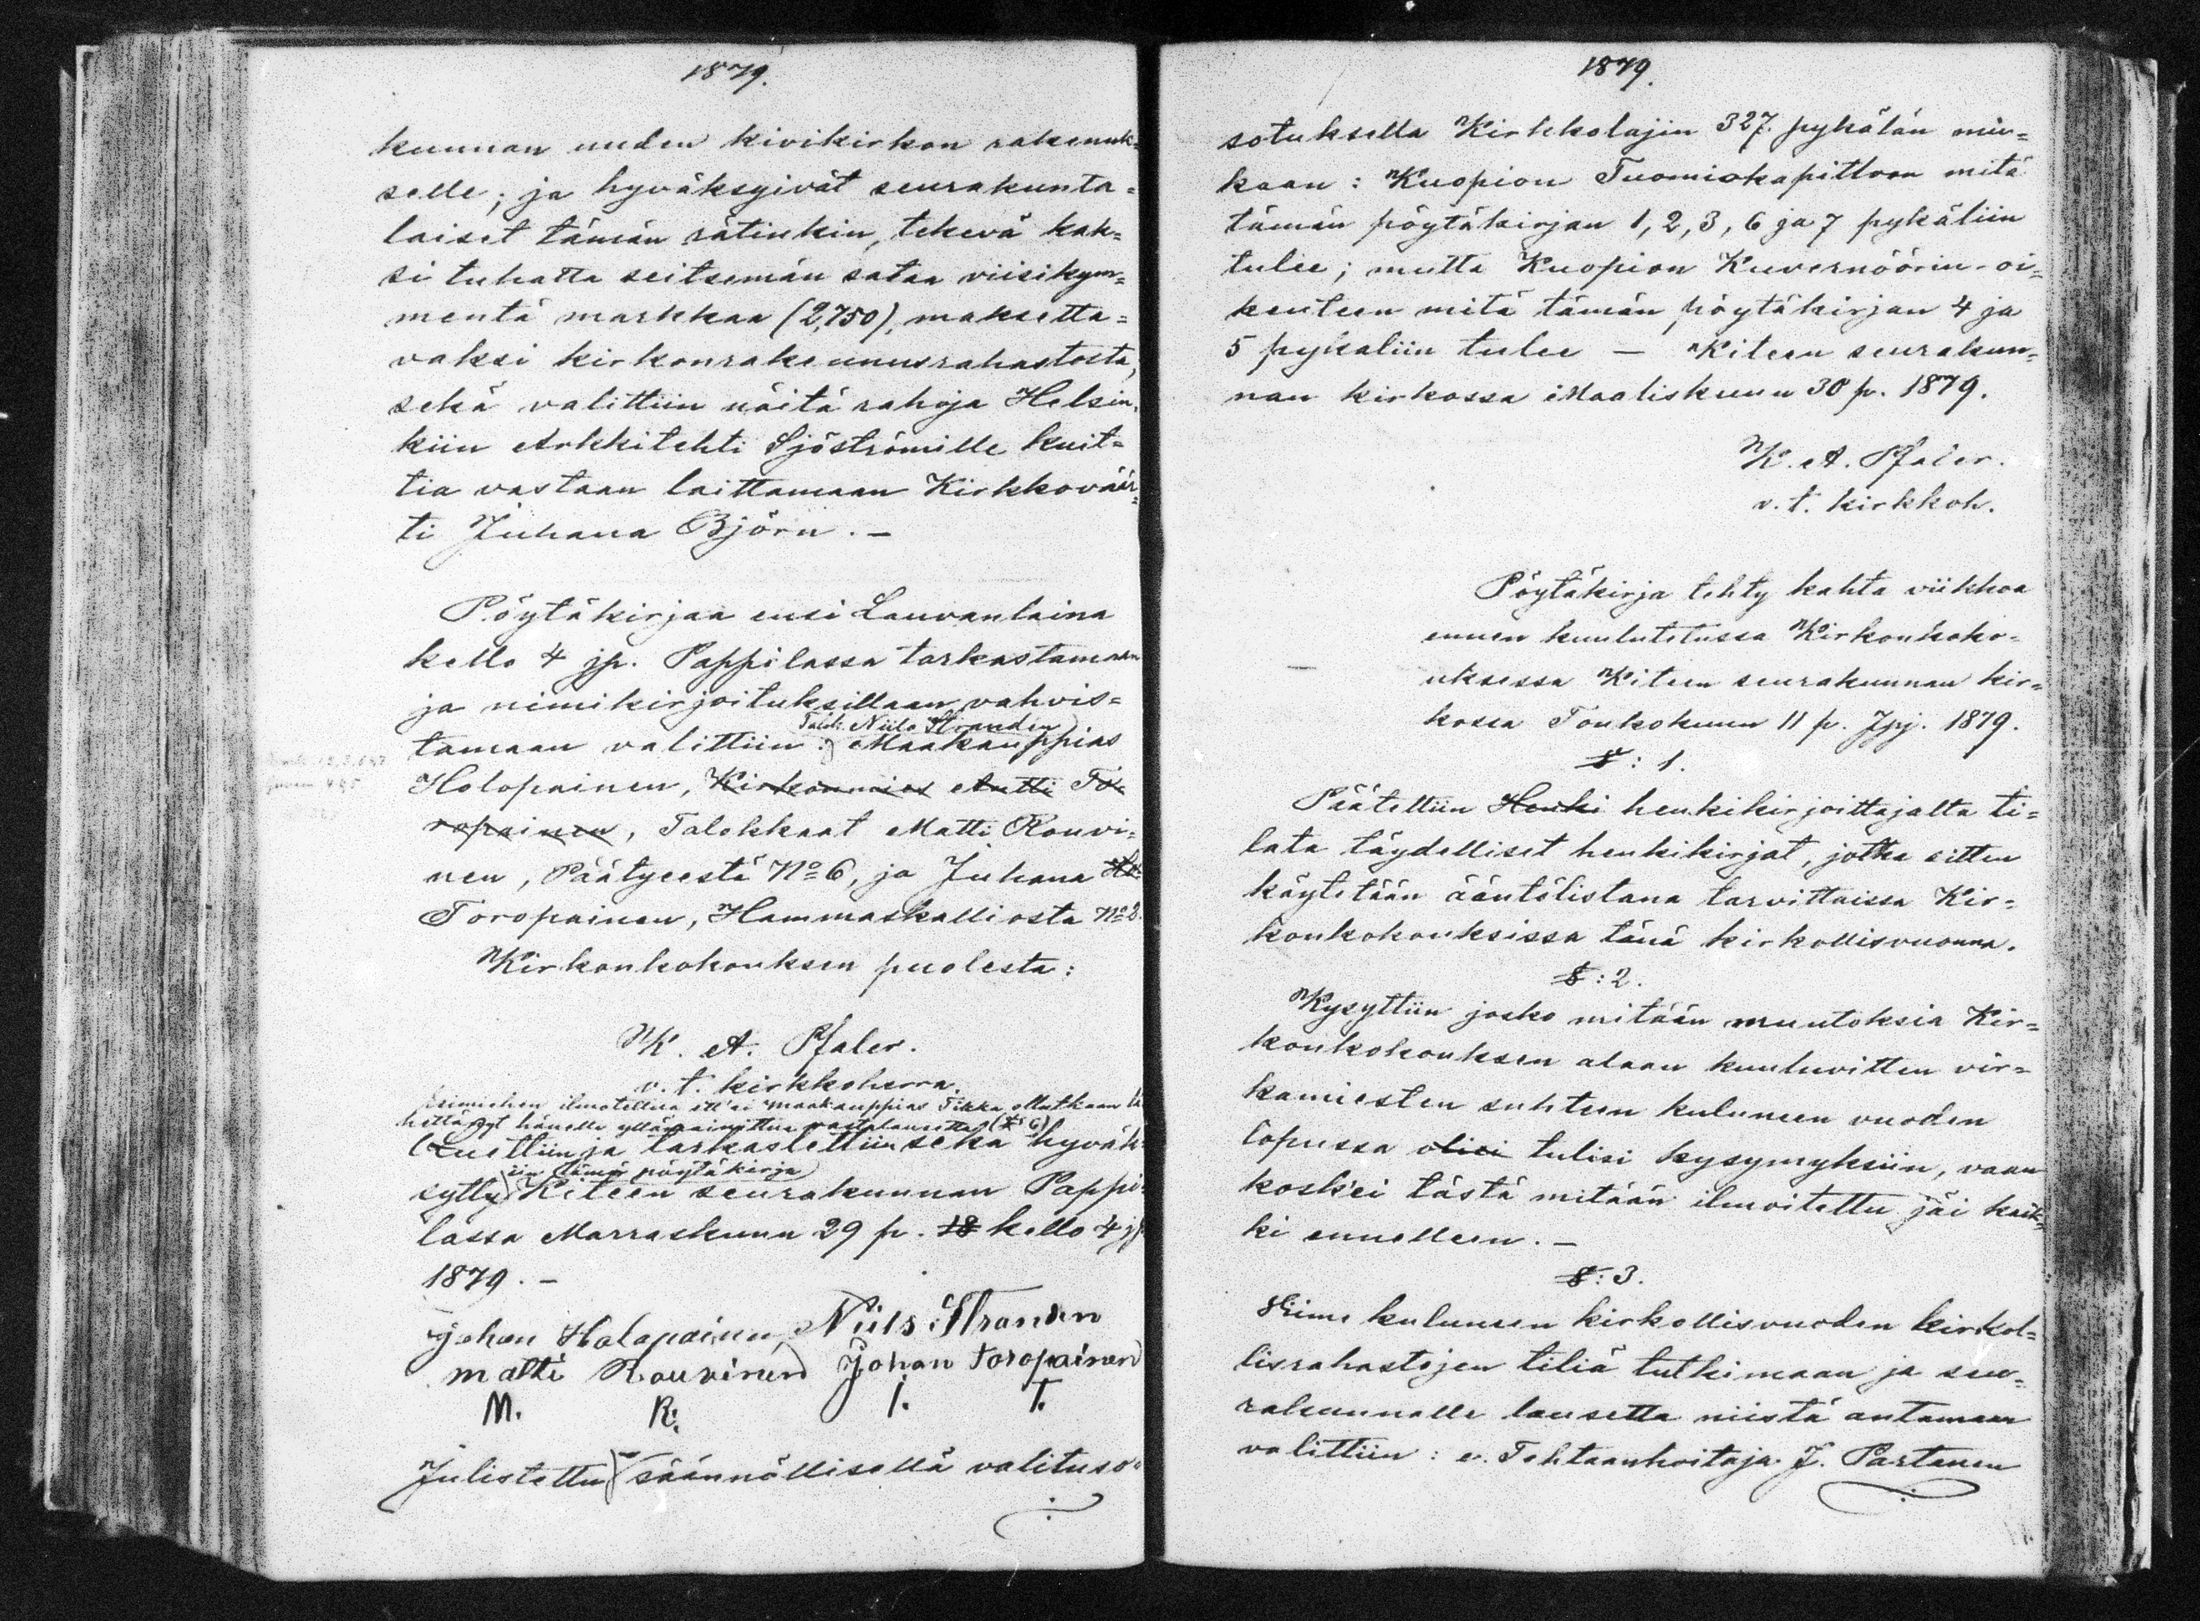 1879.
kunnan uuden kivikirkon rakenuk=
selle; ja hyväksyivät seurakunta=
laiset tämän rätinkin, tekevä kak=
si tuhatta seitsemän sataa viisikym=
mentä markkaa (2,750), maksetta=
vaksi kirkonrakennusrahastosta,
sekä valittiin näitä rahoja Helsin=
kiin Arkkitehti Sjöströmille kuit=
tia vastaan laittamaan Kirkkoväär=
ti Juhana Björn. —
Pöytäkirjaa ensi Lauvantaina
kello 4 jp. Pappilassa tarkastamaan
ja nimikirjoituksillaan vahvis=
Talok: Niilo Stranden
tamaan valittiin: Maakauppias
Holopainen, Kirkonmies Antti To=
ropainen, Talokkaat Matti Rouvi=
nen, Päätyeestä No 6, ja Juhana
Toropainen, Hammaskalliosta No 2.
Kirkonkokouksen puolesta:
K. A. Pfaler.
v. t. kirkkoherra.
ilmotettua ett'ei maakauppias Tikka ollutkaan
hänelle vastalausetta (§ 6)
Luettiin ja tarkastettiin sekä hyväk=
iin tämä pöytäkirja
sytty Kiteen seurakunnan Pappi=
lassa Marraskuun 29 p. 18 kello 4 jp
1879. —
Johan Holopainen Niils Stranden
matti Rouvinen Johan Toropainen
M. R. J. T.
Julistettu säännöllisellä valituso=
1879.
sotuksella Kirkkolajin 327 pykälän mu=
kaan: Kuopion Tuomiokapittoon mitä
tämän pöytäkirjan 1, 2, 3, 6 ja 7 pykäliin
tulee; mutta Kuopion Kuvernöörin-oi=
keuteen mitä tämän pöytäkirjan 4 ja
5 pykäliin tulee — Kiteen seurakun=
nan kirkossa Maaliskuun 30 p. 1879.
K. A. Pfaler.
v. t. kirkkoh.
Pöytäkirja tehty kahta viikkoa
ennen kuulutetussa Kirkonkoko=
uksessa Kiteen seurakunnan kir=
kossa Toukokuun 11 p. Jpj. 1879.
§: 1.
Päätettiin Henki henkikirjoittajalta ti=
lata täydelliset henkikirjat, jotka sitten
käytetään ääntölistana tarvittaissa Kir=
konkokouksissa tänä kirkollisvuonna.
§: 2.
Kysyttiin josko mitään muutoksia Kir=
konkokouksen alaan kuuluvitten vir=
kamiesten suhteen kuluneen vuoden
lopussa olisi tulisi kysymyksiin, vaan
kosk'ei tästä mitään ilmoitettu jäi kaik=
ki ennelleen. —
§: 3.
Viime kuluneen kirkollisvuoden kirkol=
lisrahastojen tiliä tutkimaan ja seu=
rakunnalle lausetta niistä antamaan
valittiin: e. Tehtaanhoitaja J. Partanen